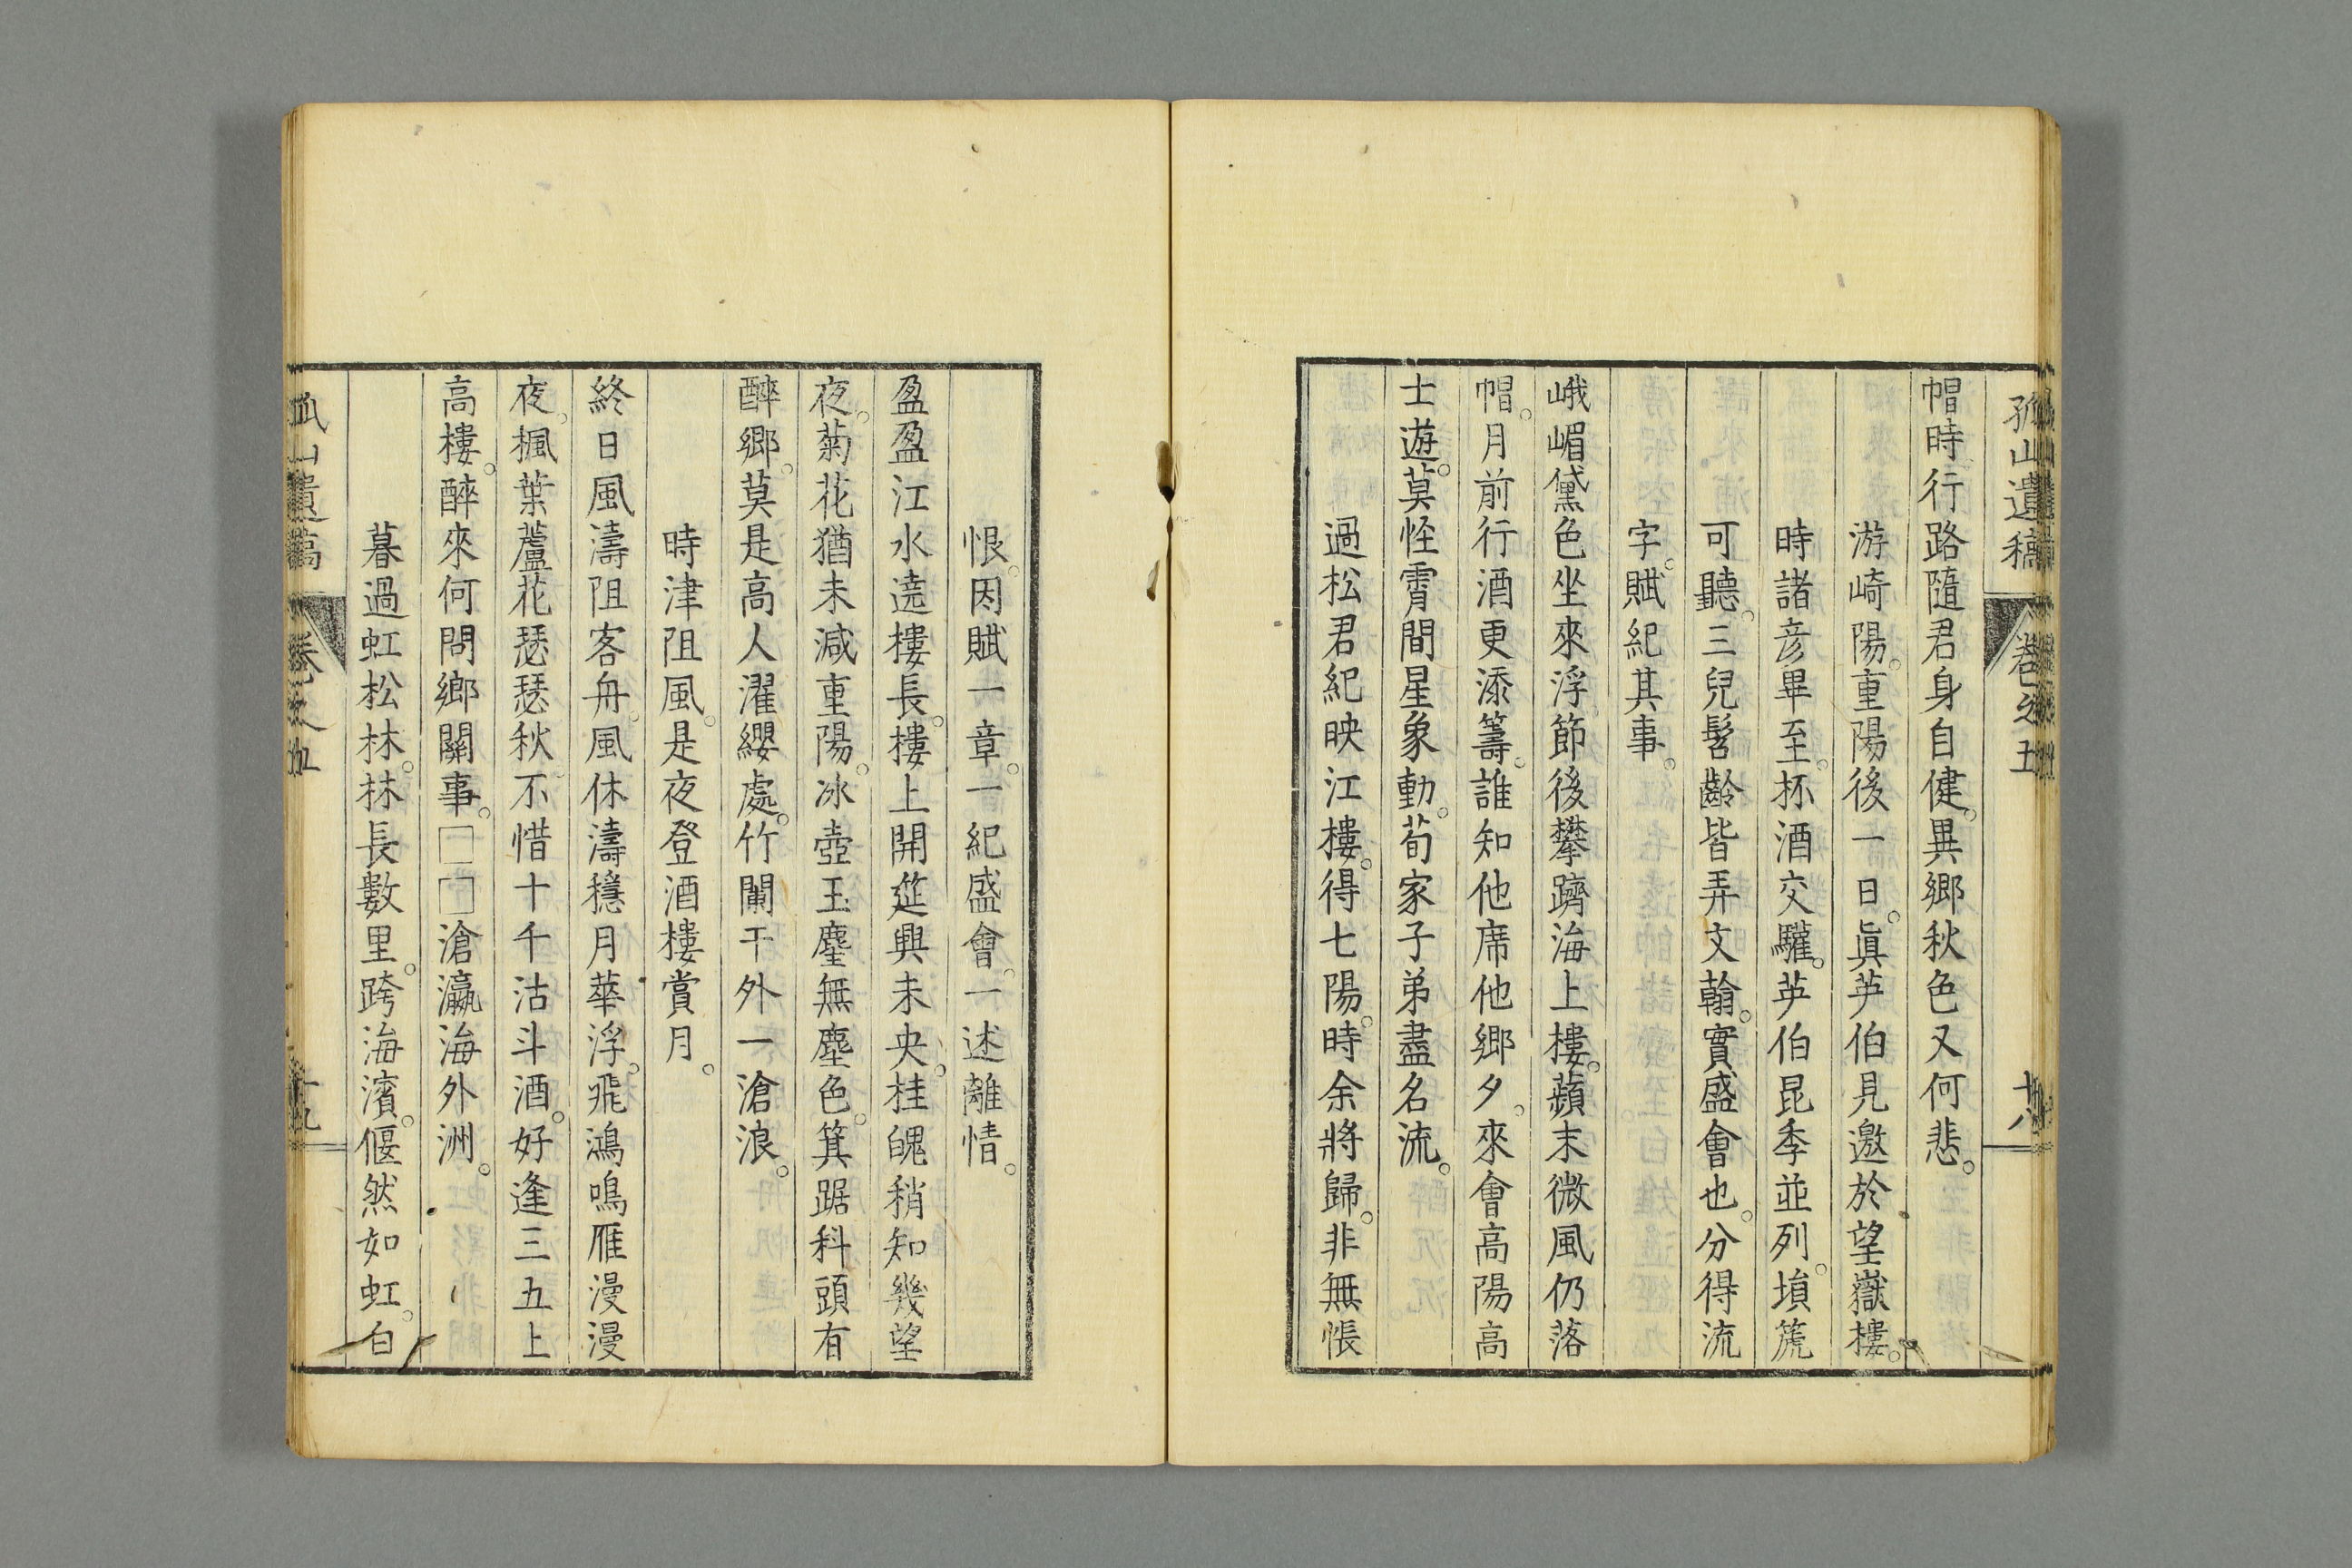 孤山遺稿 卷之五 十八
帽時行路隨君身自健。異鄉秋色又何悲。
游崎陽。重陽後一日。眞芛伯見邀於望嶽樓。
時諸彥畢至。杯酒交驩。芛伯昆季並列。塤篪
可聽。三兒髫齡皆弄文翰。實盛會也。分得流
字。賦紀其事。
峨嵋黛色坐來浮節後攀躋海上樓。蘋末微風仍落
帽。月前行酒更添籌。誰知他席他鄉夕。來會高陽高
士遊。莫怪霄間星象動。荀家子弟盡名流。
過松君紀映江樓。得七陽。時余將歸。非無悵
恨。因賦一章。一紀盛會。一述離情。
盈盈江水遶樓長。樓上開筵興未央。桂魄稍知幾望
夜。菊花猶未減重陽。冰壺玉麈無塵色。箕踞科頭有
醉鄉。莫是高人濯纓處。竹闌干外一滄浪。
時津阻風。是夜登酒樓賞月。
終日風濤阻客舟。風休濤穩月華浮。飛鴻鳴雁漫漫
夜。楓葉蘆花瑟瑟秋。不惜十千沽斗酒。好逢三五上
高樓。醉來何問鄉關事。□□滄瀛海外洲。
暮過虹松林。林長數里。跨海濱。偃然如虹。白
孤山遺稿 卷之五 十九